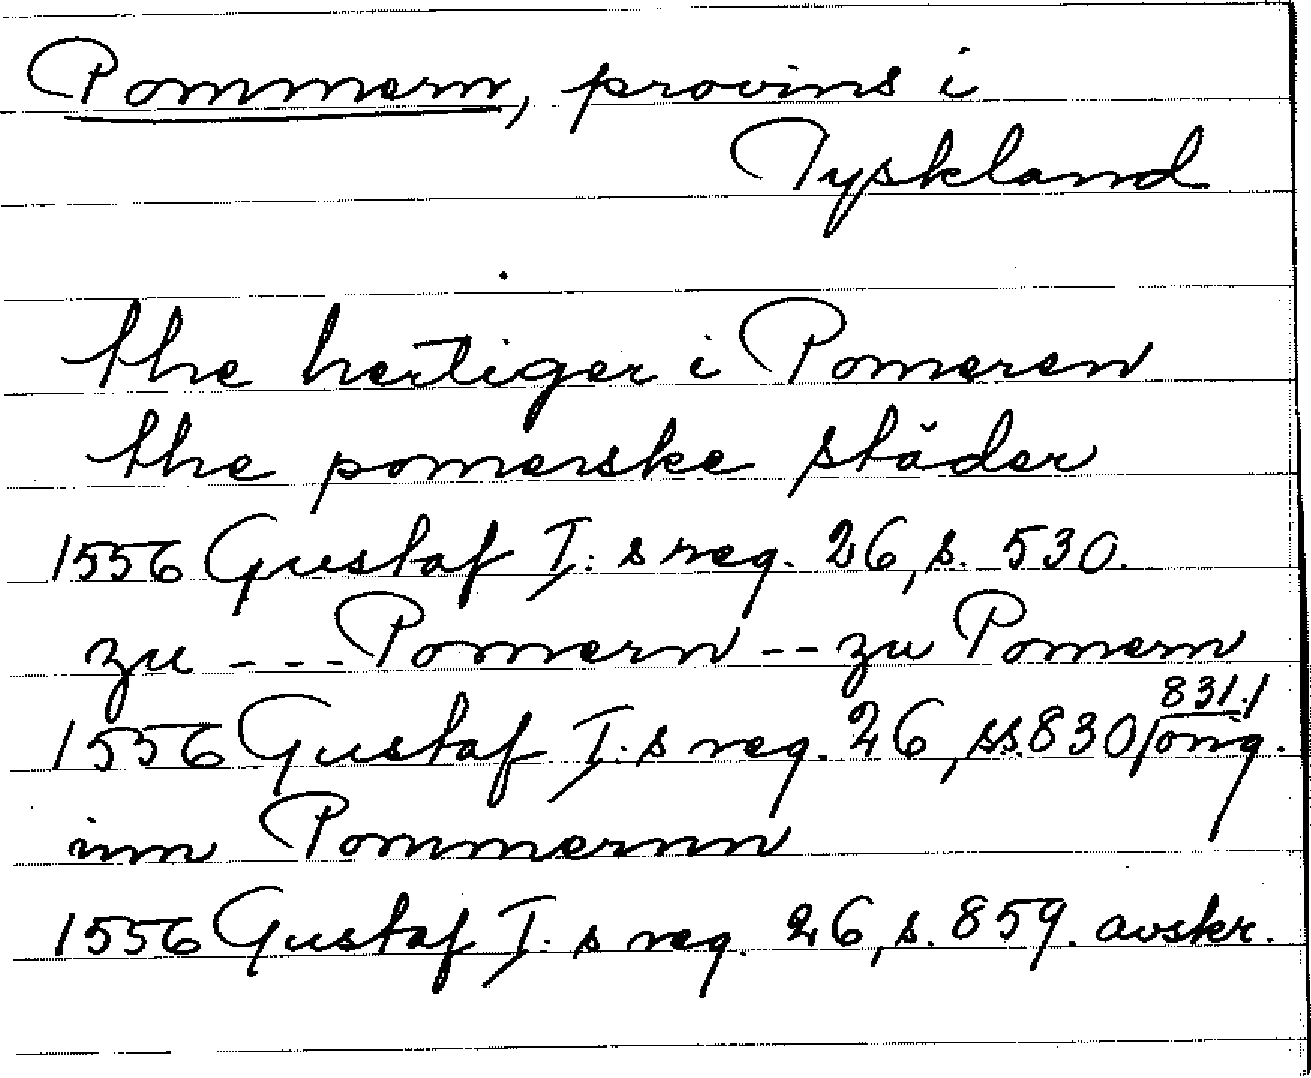 Pommern, provins i
Tyskland
the hertiger i Pomeren
the pomerske städer
1556 Gustaf I: s reg. 26, s. 530.
zu --- Pomern -- zu Pomern
1556 Gustaf I: s reg. 26, ss. 830, 831. / orig.
inn Pommernn
1556 Gustaf I: s reg. 26, s. 859. avskr.